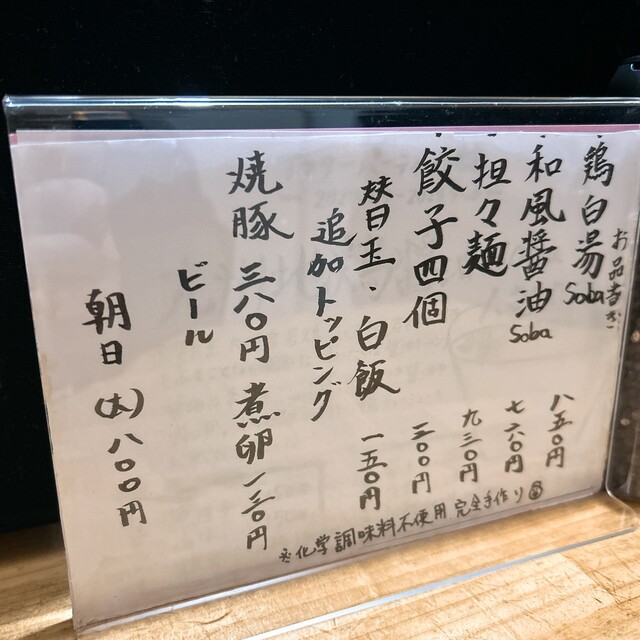 お品書き
・鶏白湯Soba 八五〇円
・和風醤油Soba 七六〇円
・担々麺 九三〇円
・餃子四個 二〇〇円
替玉・白飯 一五〇円
追加トッピング
焼豚 三八〇円 煮卵 一三〇円
ビール
朝日(大)八〇〇円
※化学調味料不使用完全手作り